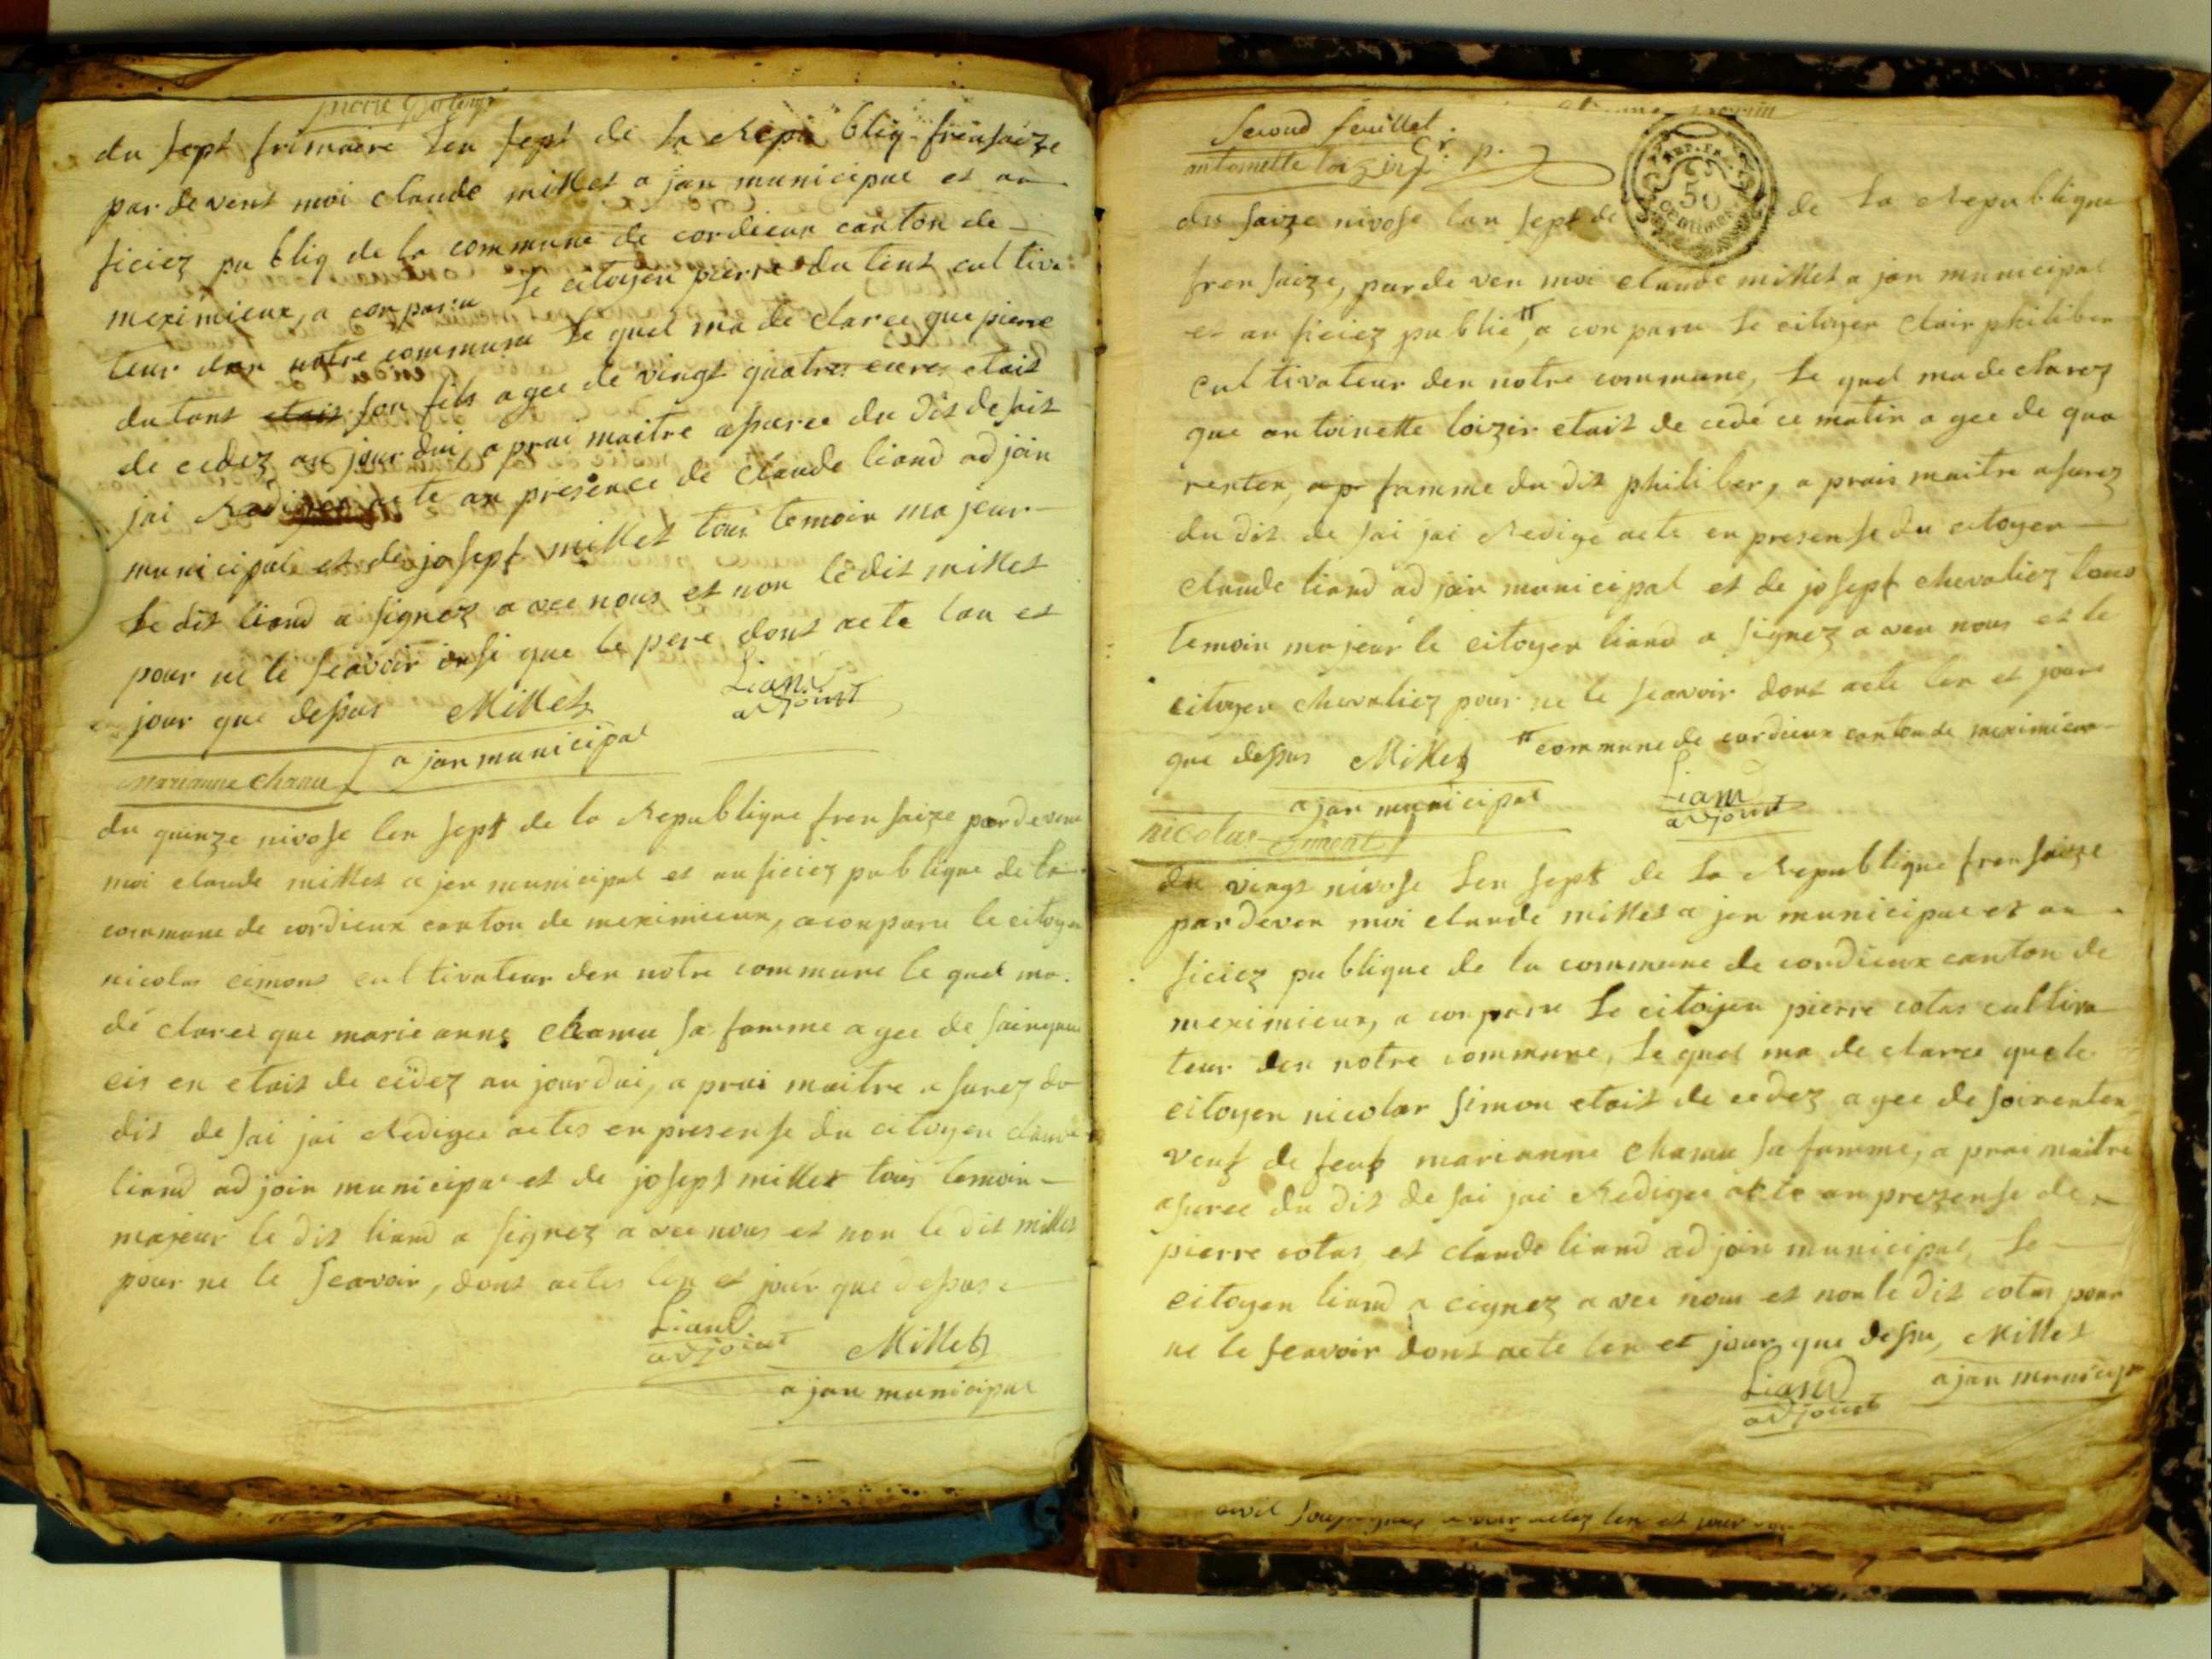 pierre
du sept frimaire len sept de la Repu bliq frensaize
par devent moi claude millet a jan municipal et au
ficiez publiq de la commune de cordieux canton de
meximieux, a conparu le citoyen pierre du tent cultiva
teur den notre commune le quel ma de claree que pierre
du tant etait son fils agee de vingt quatres eures etait
de cedez au jourdui, a prai maitre asuree du dit desait
jai Redigee acte an presence de claude liand ad join
municipal et de josept millet tous temoin majeur
le dit liand a signez avec nous et non le dit millet
pour ne le scavoir insi que le pere dont acte lan et
jour que dessus Millet Liand
adjoint
a jan municipal
marianne chanu
du quinze nivose len sept de la Republique frensaize pardevene
moi claude millet a jen municipal et au ficiez publique de la
commune de cordieux canton de meximieux, a conparu le citoyen
nicolas cimons cultivateur den notre commune le quel ma
de claree que marie anne chamu sa famme agee de sainquan
cis en etait de cedez au jourdui, a prai maitre a surez du
dit de sai jai Redigee actes en presense du citoyen claude
liand ad join municipal et de josept millet tous temoin
majeur le dit liand a signez avec nous et non le dit millet
pour ne le scavoir, dont actes len et jour que dessus
Liand
adjoint Millet
a jan municipal
Second feuillet.
antoinette loizir p.
REP. FRA.
50
CENTIMES
du saize nivose lan sept de de la Republique
fren saize, par de ven moi claude millet a jan municipal
et au ficiez publie " a conparu le citoyen clair philiber
cultivateur den notre commune, le quel ma declarez
que antoinette loizir etait de cedé ce matin agee de qua
renten, ap famme du dit philiber, a prais maitre asurez
du dit de sai jai Redige acte en presense du citoyen
claude liand ad join municipal et de josept chevaliez tous
temoin majeur le citoyen liand a signez aven nous et le
citoyen chevaliez pour ne le scavoir dont acte len et jour
que dessus Millet " commune de cordieux canton de meximieux
a jan municipal Liand
adjoint
nicolas
du vingt nivose len sept de la Republique fren saize
pardeven moi claude millet a jen municipal et au
ficiez publique de la commune de cordieux canton de
meximieux, a conparu le citoijen pierre cotas cultiva
teur den notre commune, le quel ma de claree que le
citoyen nicolar simon etait de cedez agee de soirenten
veuf de feuf marianne chamu sa famme, a prai maitre
asuree du dit de sai jai Redigee acte an prezense de
pierre cotas et claude liand ad join municipal, le
citoyen liand a cignez avec nous et non le dit cotas pour
ne le scavoir dont acte len et jour que dessu, Millet
Liand a jan municip
adjoint
len et jour